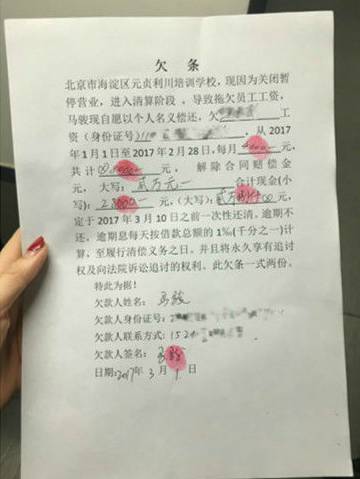 欠 条
北京市海淀区元贞利川培训学校，现因为关闭暂
停营业，进入清算阶段，导致拖欠员工工资，
马骏现自愿以个人名义偿还，欠 工
资（身份证号 ，从 2017
年1月1日至 2017 年 2 月 28 日，每月 4000 元，
共计 8000 元， 解除合同赔偿金
元， 大写： 贰万元 合计现金(小
写)： 28000 元，（大写）： 贰万 元，
定于 2017 年 3 月 10 日之前一次性还清。逾期不
还。逾期息每天按借款总额的 1‰(千分之一)计
算，至履行清偿义务之日。并且将永久享有追讨
权及向法院诉讼追讨的权利。此欠条一式两份。
特此为据！
欠款人姓名： 马骏
欠款人身份证号：
欠款人联系方式： 152
欠款人签名： 马骏
日期：2017年 3 月 1 日